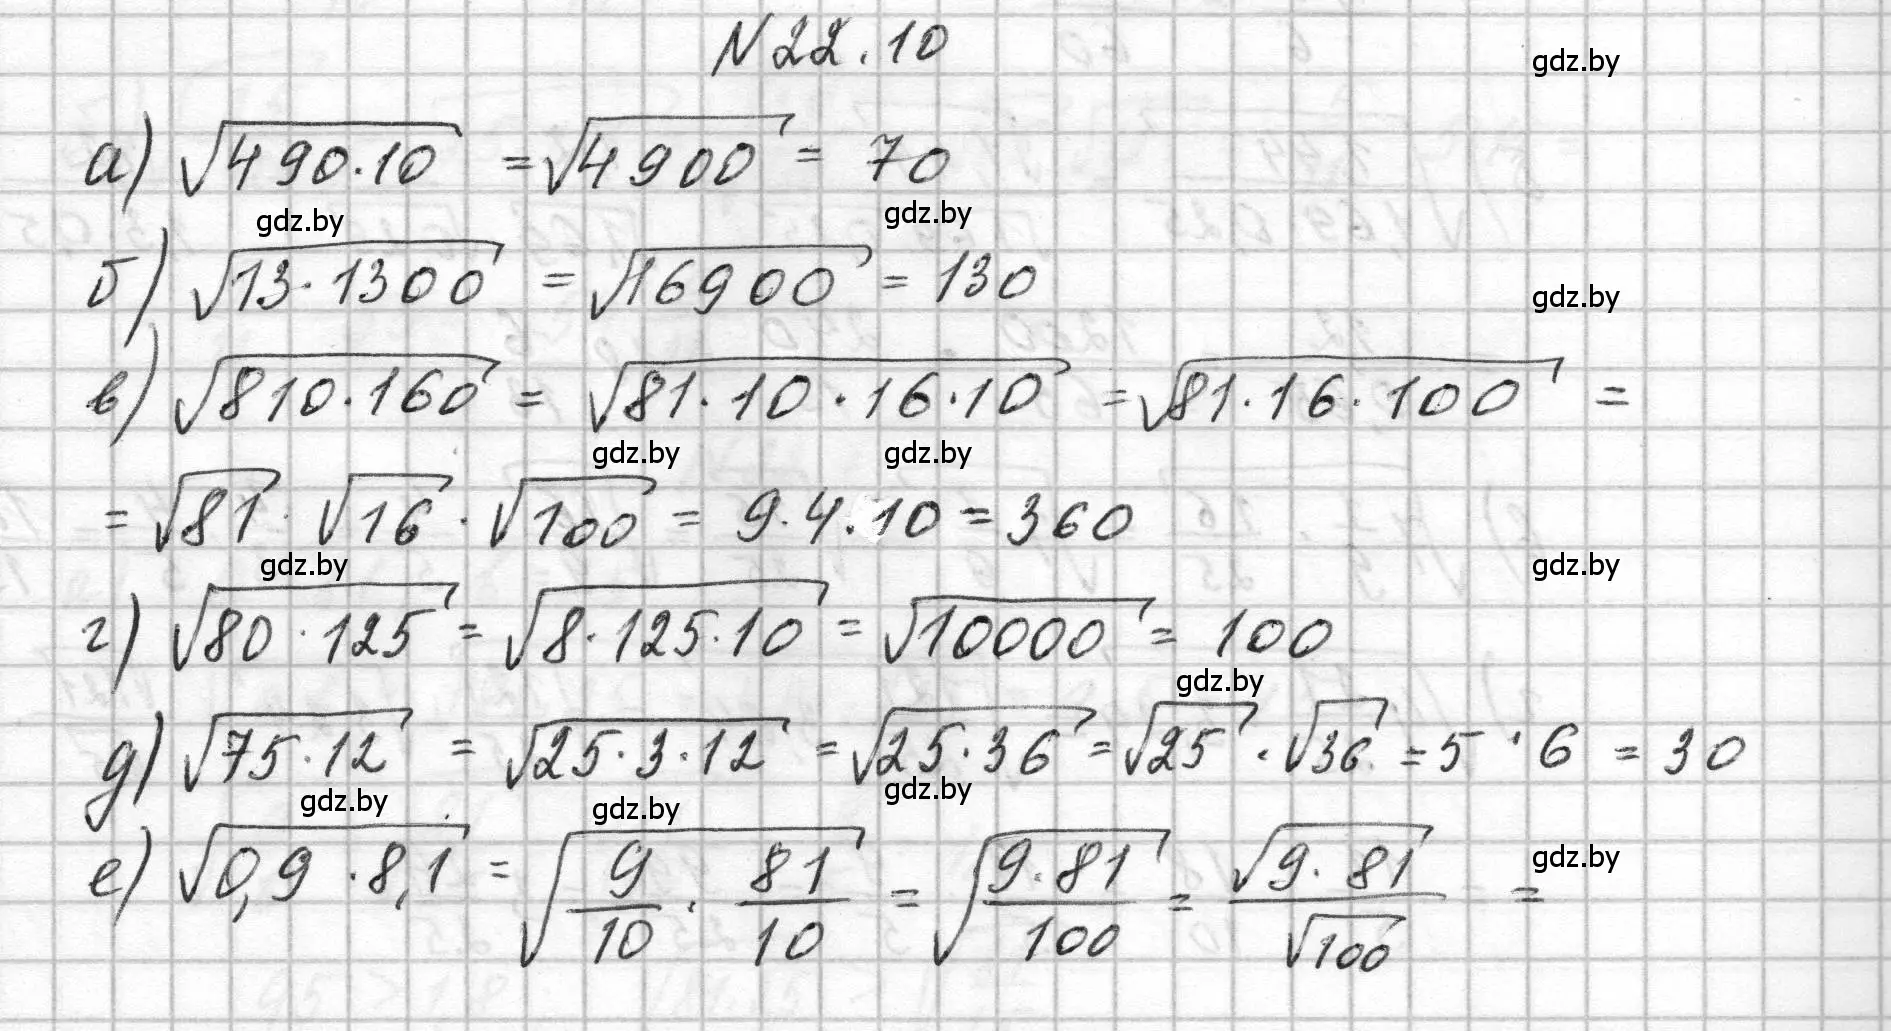 N 22.10
gdz.by
а) √(490·10) = √4900 = 70
gdz.by gdz.by
б) √(13·1300) = √16900 = 130
gdz.by
в) √(810·160) = √(81·10·16·10) = √(81·16·100) =
gdz.by gdz.by
= √81 · √16 · √100 = 9·4·10 = 360
gdz.by gdz.by
г) √(80·125) = √(8·125·10) = √10000 = 100
gdz.by
д) √(75·12) = √(25·3·12) = √(25·36) = √25 · √36 = 5 · 6 = 30
gdz.by gdz.by gdz.by
е) √(0,9·8,1) = √(9/10 · 81/10) = √(9·81/100) = √(9·81)/√100 =
gdz.by